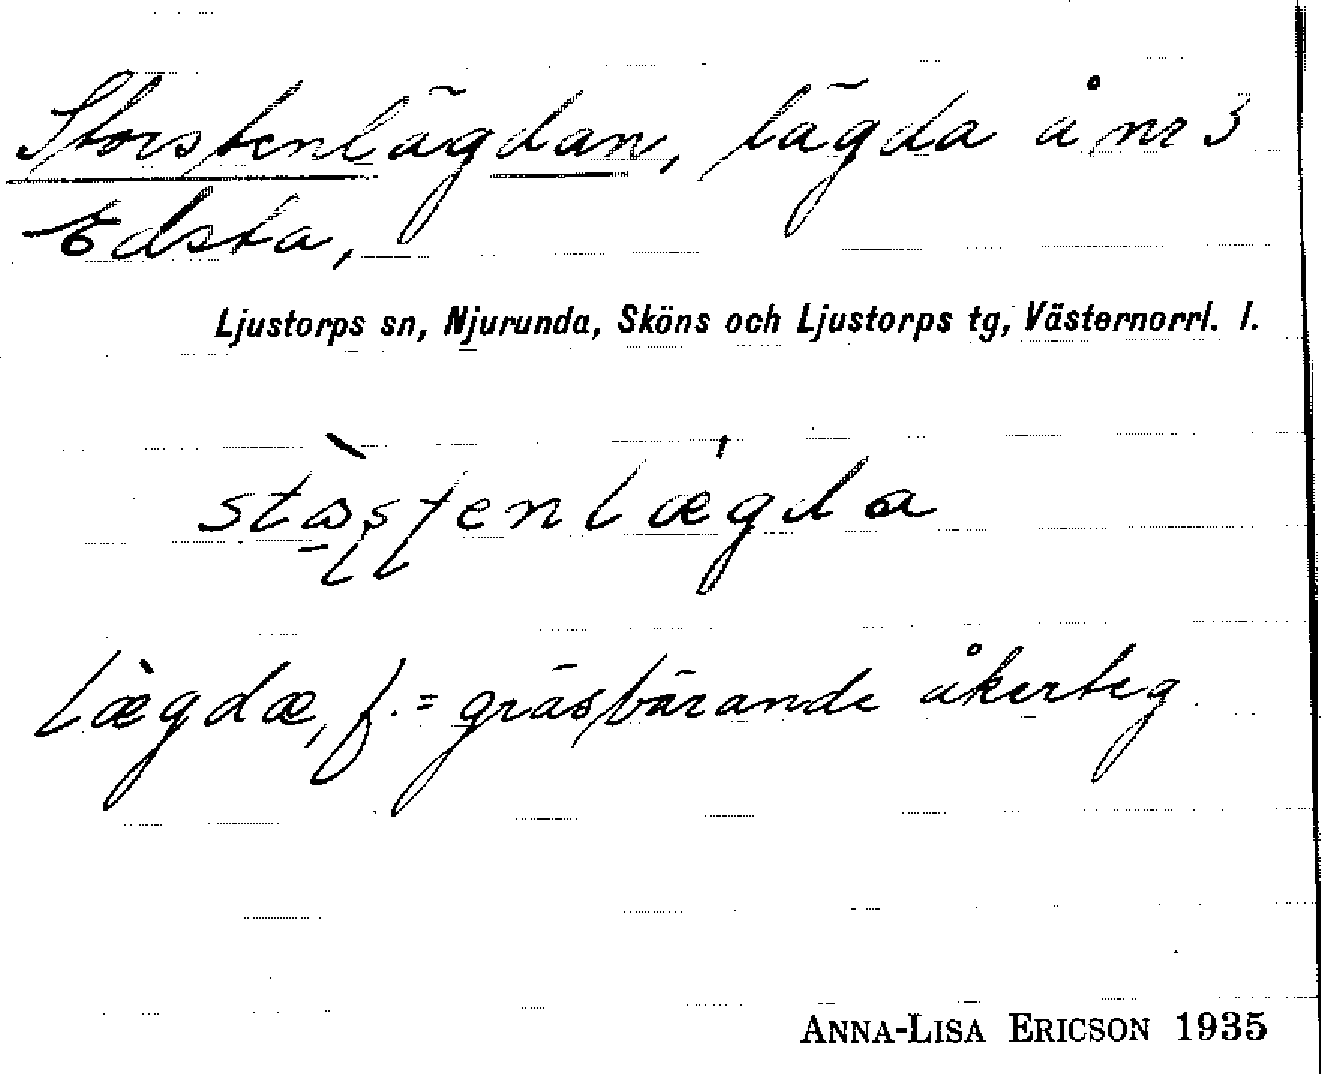 Storstenlägdan, lägda å nr 3
Edsta,
Ljustorps sn, Njurunda, Sköns och Ljustorps tg, Västernorrl. l.
lægdæ, f. = gräsbärande åkerteg.
ANNA-LISA ERICSON 1935